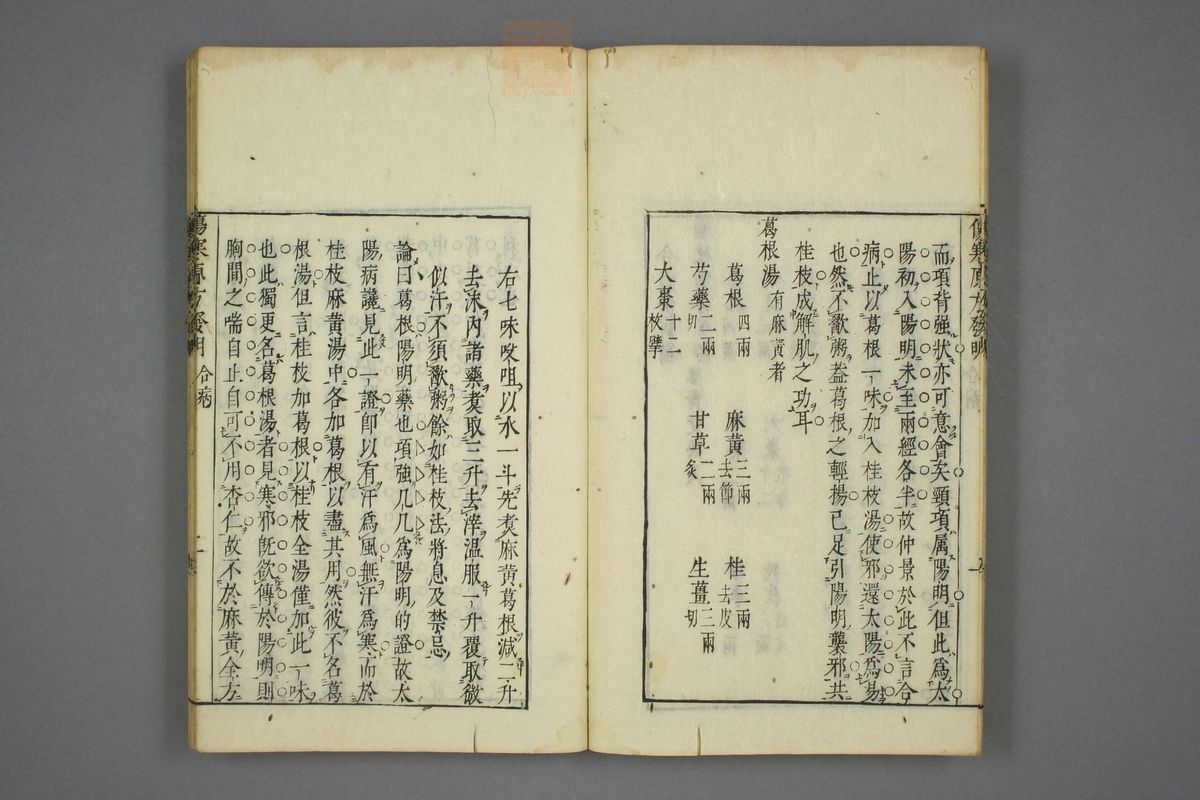 傷寒原方發明 合病 一
而項背強狀亦可意會矣頸項属陽明但此為太
陽初入陽明未至兩經各半故仲景於此不言合
病止以葛根一味加入桂枝湯使邪還太陽為易
也然不歠粥葢葛根之輕揚已足引陽明襲邪共
桂枝成解肌之功耳
葛根湯 有麻黃者
葛根四兩 麻黃三兩去節 桂三兩去皮
芍藥二兩切 甘草二兩炙 生薑三兩切
大棗十二枚擘
右七味㕮咀以水一斗先煑麻黃葛根減二升
去沫內諸藥煑取三升去滓溫服一升覆取微
似汗不須歠粥餘如桂枝法將息及禁忌
論曰葛根陽明藥也項強几几為陽明的證故太
陽病纔見此一證卽以有汗為風無汗為寒而於
桂枝麻黃湯中各加葛根以盡其用然彼不名葛
根湯但言桂枝加葛根以桂枝全湯僅加此一味
也此獨更名葛根湯者見寒邪旣欲傳於陽明則
胸間之喘自止自可不用杏仁故不於麻黃全方
傷寒原方發明 合病 二